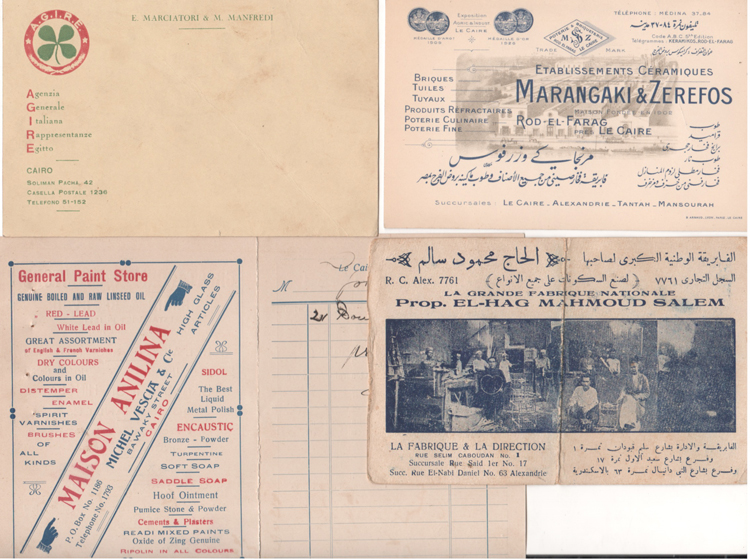 A.G.I.R.E.
E. MARCIATORI & M. MANFREDI
Agenzia
Generale
Italiana
Rappresentanze
Egitto
CAIRO
SOLIMAN PACHA, 42
CASELLA POSTALE 1236
TELEFONO 51-162
Exposition
Agric. & Indust.
LE CAIRE
MEDAILLE D'OR
TÉLÉPHONE: MEDINA 37,84
تليفون نمرة ٨٤-٣٧ مدينه
Code A.B.C. 5th Edition
Télégrammes: KERAMIKOS, ROD-EL-FARAG
TRADE MARK
POTERIE & BRIQUETERIE
M S Z
LE CAIRE
ETABLISSEMENTS CÉRAMIQUES
MARANGAKI & ZEREFOS
MAISON FONDÉE EN 1906
ROD-EL-FARAG
PRÈS LE CAIRE
BRIQUES
TUILES
TUYAUX
PRODUITS RÉFRACTAIRES
POTERIE CULINAIRE
POTERIE FINE
طوب
مرنجاكي وزرفوس
SUCCURSALES: LE CAIRE - ALEXANDRIE - TANTAH - MANSOURAH
General Paint Store
GENUINE BOILED AND RAW LINSEED OIL
RED - LEAD
White Lead in Oil
GREAT ASSORTMENT
of English & French Varnishes
DRY COLOURS
and Colours in Oil
DISTEMPER
ENAMEL
SPIRIT
VARNISHES
BRUSHES
OF
ALL
KINDS
MAISON ANILINA
MICHEL VESCIA & Cie
BAWAKY STREET
CAIRO
P. O. Box No. 1186
Telephone No. 1793
HIGH GLASS
ARTICLES
SIDOL
The Best
Liquid
Metal Polish
ENCAUSTIC
Bronze - Powder
TURPENTINE
SOFT SOAP
SADDLE SOAP
Hoof Ointment
Pumice Stone & Powder
Cements & Plasters
READI MIXED PAINTS
Oxide of Zing Genuine
RIPOLIN IN ALL COLOURS
Le Cai
M
الحاج محمود سالم
الفابريقة الوطنية الكبرى لصاحبها
R. C. Alex. 7761
(لصنع المسكوكات على جميع الأنواع)
السجل التجارى ٧٧٦١
LA GRANDE FABRIQUE NATIONALE
Prop. EL-HAG MAHMOUD SALEM
LA FABRIQUE & LA DIRECTION
RUE SELIM CABOUDAN No. 1
Succursale Rue Said 1er No. 17
Succ. Rue El-Nabi Daniel No. 63 Alexandrie
الفابريقة والادارة بشارع سليم قبودان نمرة ١
وفرع بشارع سعيد الأول نمرة ١٧
وفرع بشارع النبي دانيال نمرة ٦٣ بالاسكندرية